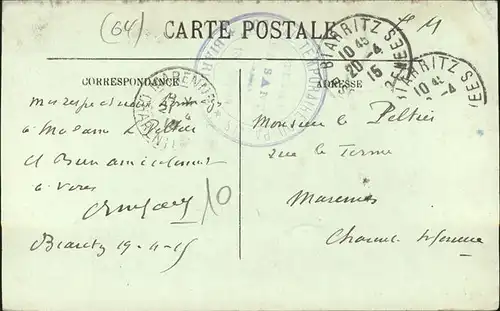 (64)
CARTE POSTALE
F M
BIARRITZ
10 45
20-4
15
BIARRITZ
10 45
-4
MARENNES
TEMPORAIRE
CORRESPONDANCE
ADRESSE
mes respectueux
à Madame Le Peltier
et Bien amicalement
à vous
Biarritz 19-4-15
10
Monsieur Le Peltier
rue Le Terme
Marennes
Charente Inférieure